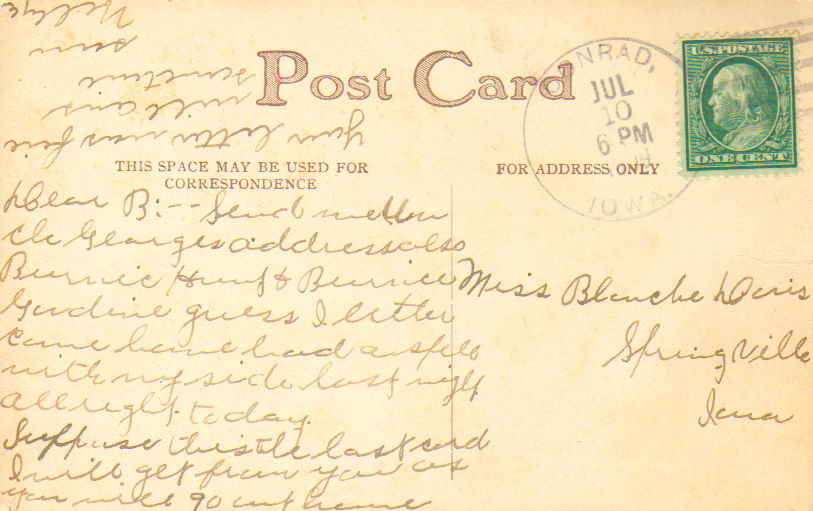 Post Card
THIS SPACE MAY BE USED FOR
CORRESPONDENCE
FOR ADDRESS ONLY
ONRAD,
JUL
10
6 PM
IOWA.
U.S. POSTAGE
ONE CENT
Dear B:-- Send me
Georges address also
Burnie Hunt & Burnice
guess I
came home had a spell
with my side last night
all right today.
Suppose this the last card
I will get from you as
you will go home
Your letter was fine
will ans
sometime
soon
Nellye
Miss Blanche Davis
Springville
Iowa